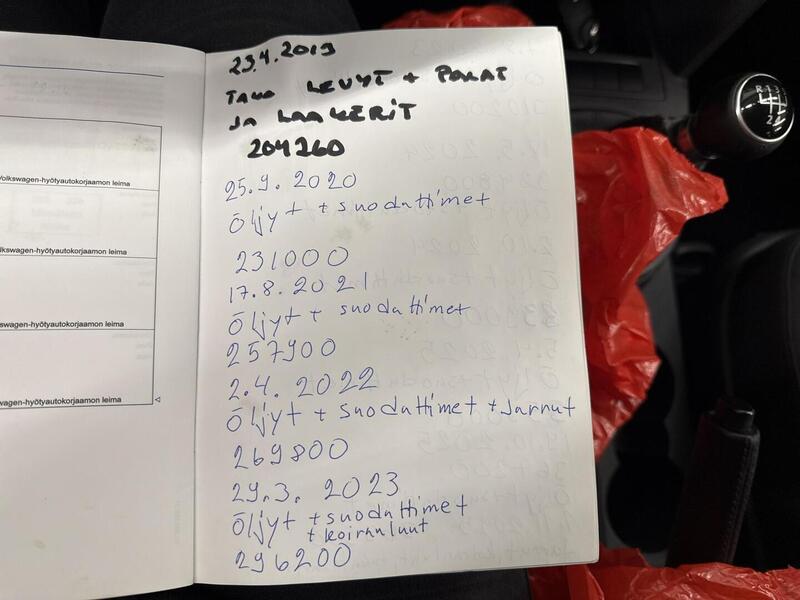 Volkswagen-hyötyautokorjaamon leima
lkswagen-hyötyautokorjaamon leima
swagen-hyötyautokorjaamon leima
wagen-hyötyautokorjaamon leima
23.4.2019
TAKA LEVYT + PALAT
JA LAAKERIT
204260
25.9.2020
Öljyt + suodattimet
231000
17.8.2021
Öljyt + suodattimet
257900
2.4.2022
Öljyt + suodattimet + Jarrut
269800
29.3.2023
Öljyt + suodattimet
+ koiranluut
296200